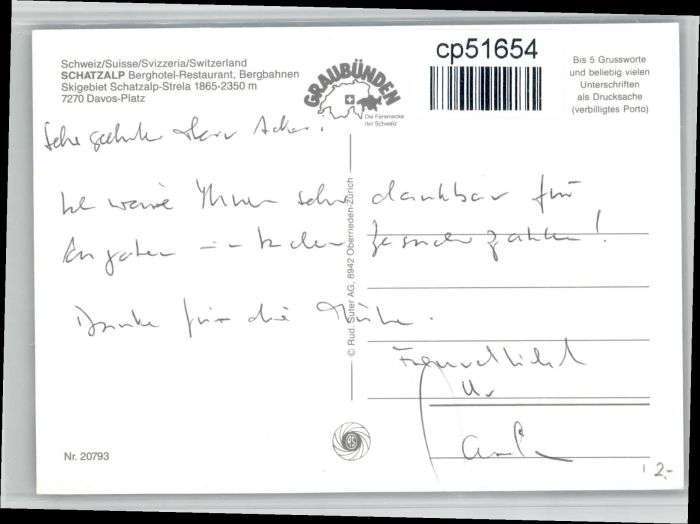 Schweiz/Suisse/Svizzera/Switzerland
SCHATZALP Berghotel-Restaurant, Bergbahnen
Skigebiet Schatzalp-Strela 1865-2350 m
7270 Davos-Platz
GRAUBÜNDEN
Die Ferienecke
der Schweiz
cp51654
Bis 5 Grussworte
und beliebig vielen
Unterschriften
als Drucksache
(verbilligtes Porto)
Sehr geehrter Herr
Ich wäre Ihnen sehr dankbar für
Angaben
Danke für die Mühe.
Freundlichst
Ihr
© Rud. Suter AG, 8942 Oberrieden-Zürich
Nr. 20793
2.-